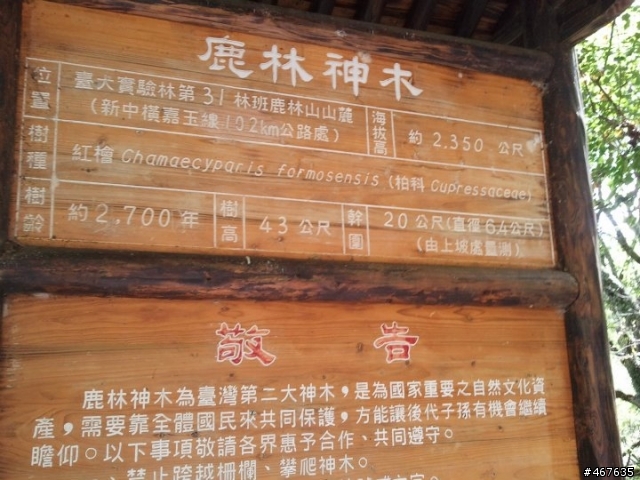 鹿林神木
位置 臺大實驗林第31林班鹿林山山麓
(新中橫嘉玉線102km公路處) 海拔高 約2.350公尺
樹種 紅檜 Chamaecyparis formosensis (柏科 Cupressaceae)
樹齡 約2,700年 樹高 43公尺 幹圍 20公尺(直徑6.4公尺)
(由上坡處量測)
敬告
鹿林神木為臺灣第二大神木,是為國家重要之自然文化資
產,需要靠全體國民來共同保護,方能讓後代子孫有機會繼續
瞻仰。以下事項敬請各界惠予合作、共同遵守。
、禁止跨越柵欄、攀爬神木。
#467635